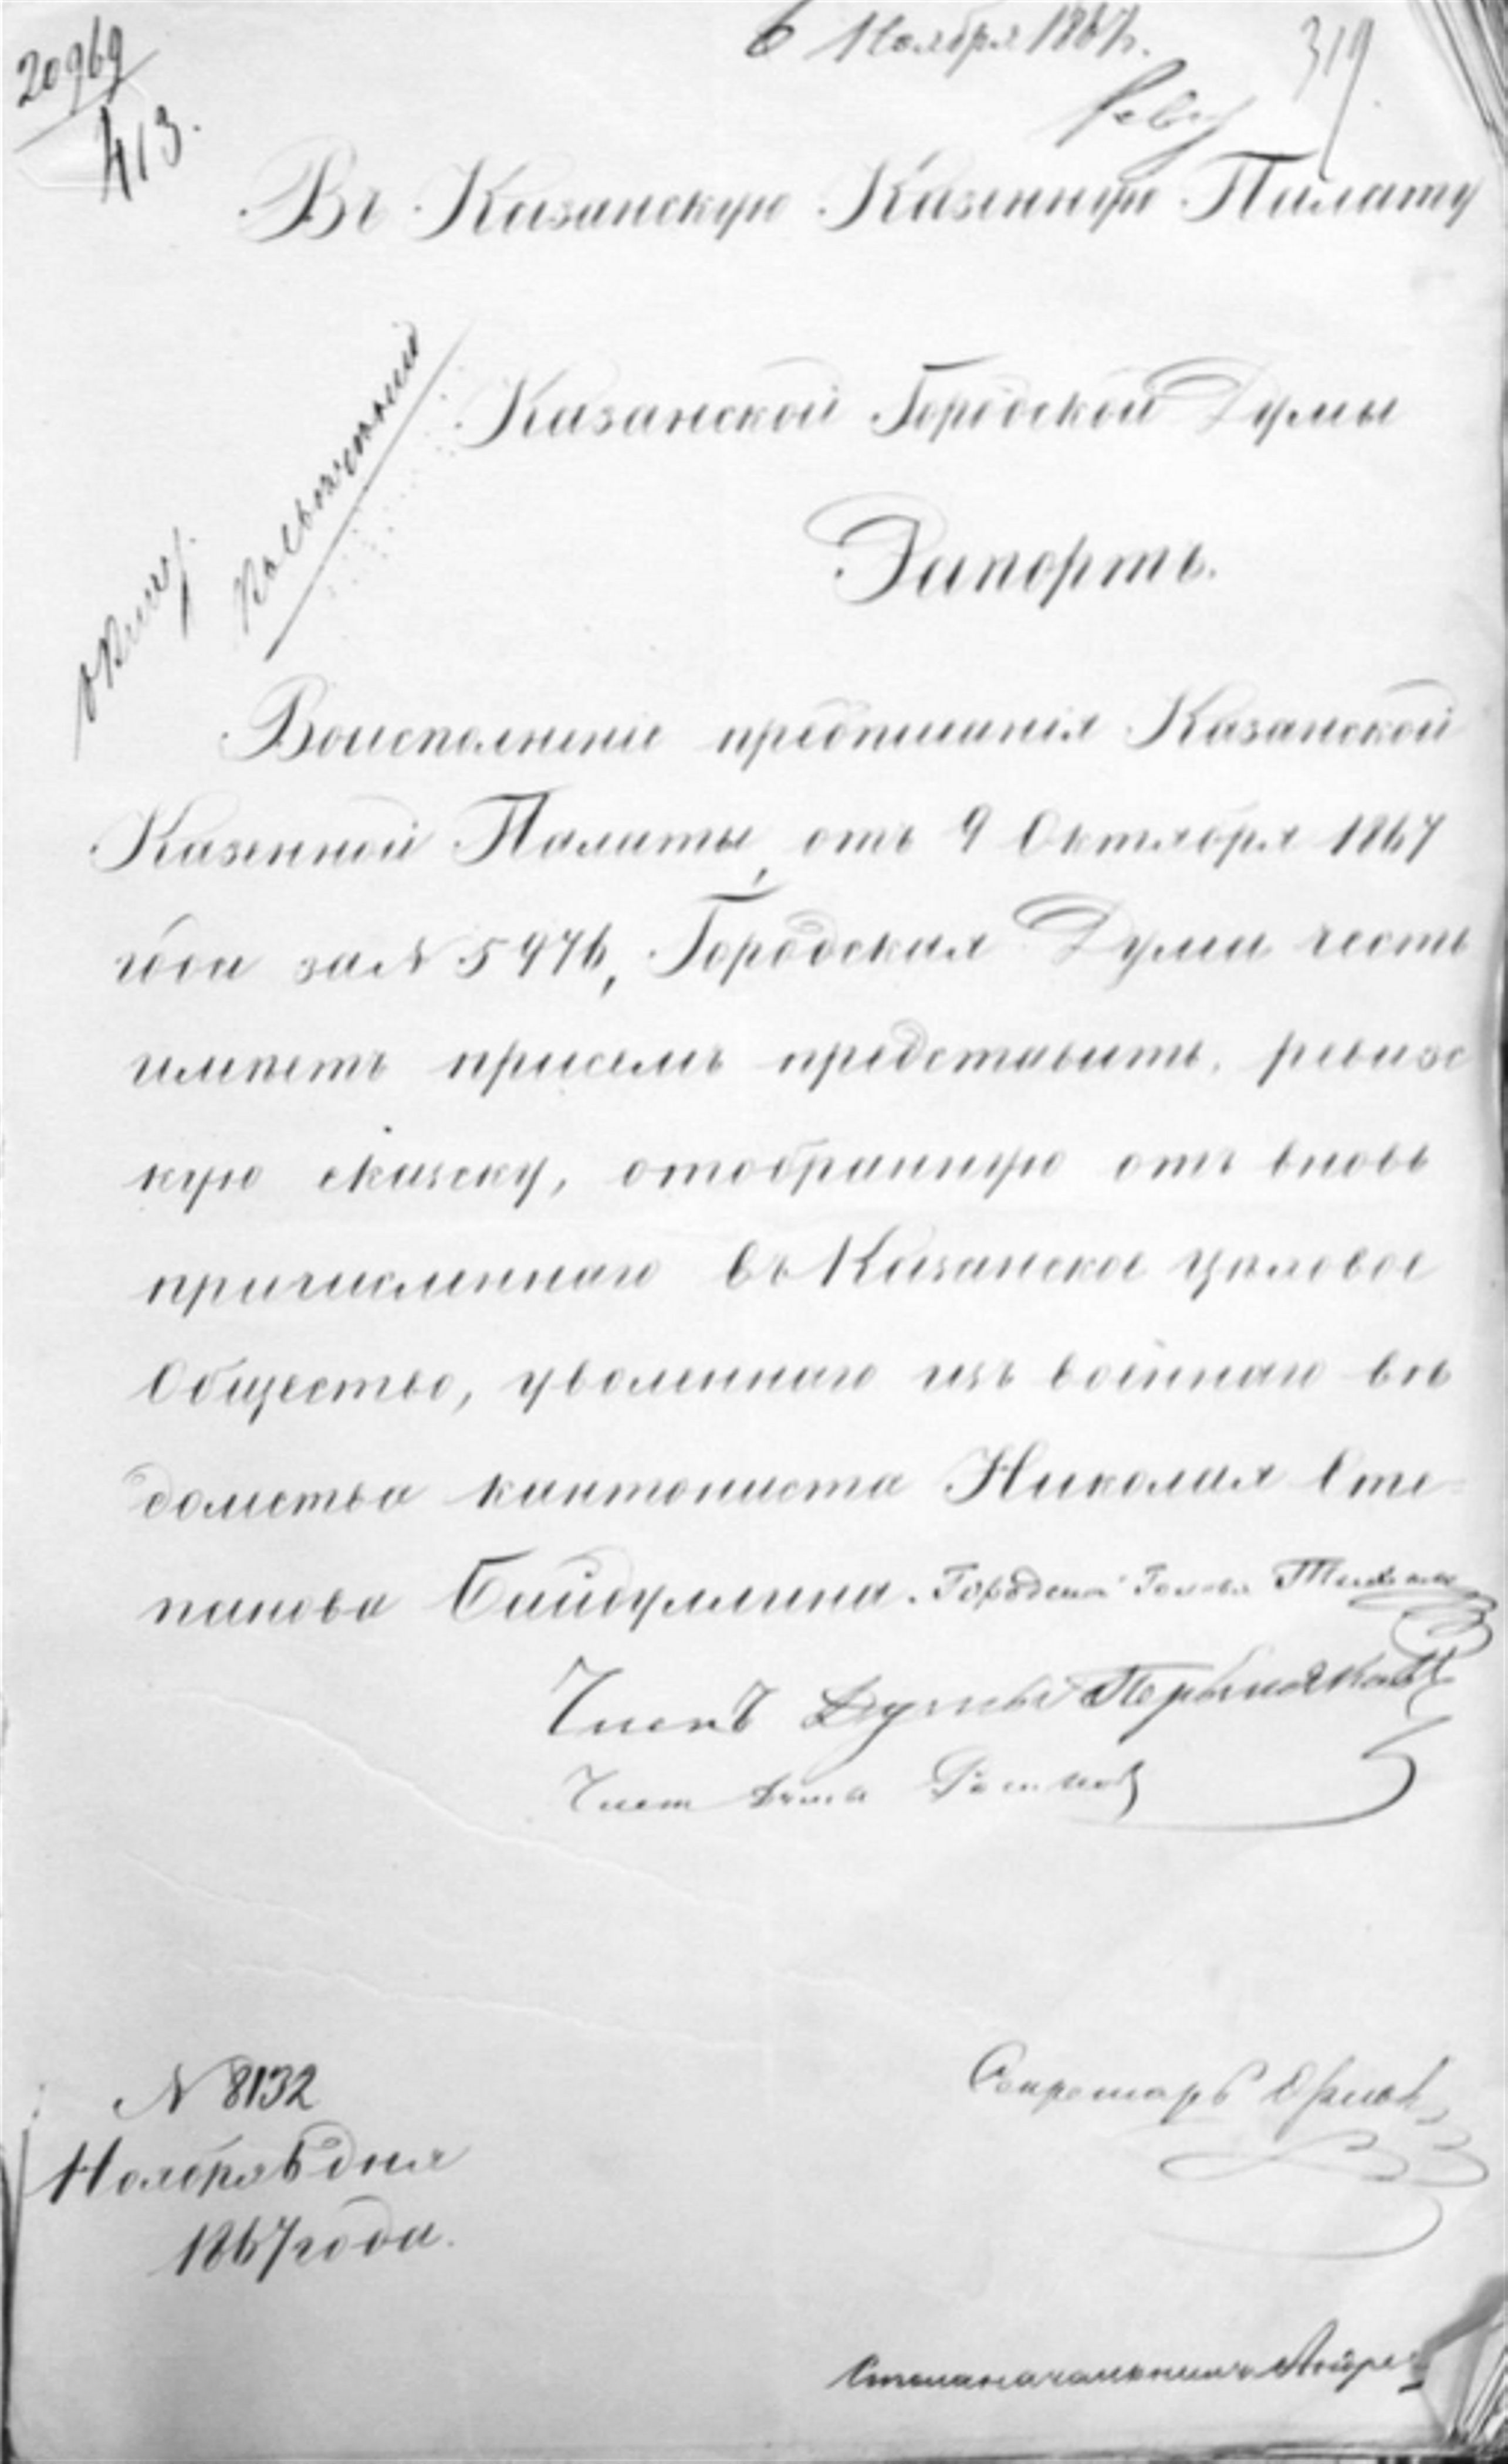 20969
413.
6 Ноября 1867.
319.
Въ Казанскую Казенную Палату
Казанской Городской Думы
Рапортъ.
Воисполненіе предписанія Казанской
Казенной Палаты, отъ 9 Октября 1867
года за N 5976, Городская Дума честь
имѣетъ присемъ представить, ревизс
кую скаску, отобранную отъ вновь
причисленнаго въ Казанское цѣховое
Общество, уволеннаго изъ военнаго вѣ
домства кантониста Николая Сте-
панова Байдуллина. Городской Голова
Членъ Думы
Членъ Думы
N 8132
Ноября 6 дня
1867 года.
Секретарь
Столоначальникъ